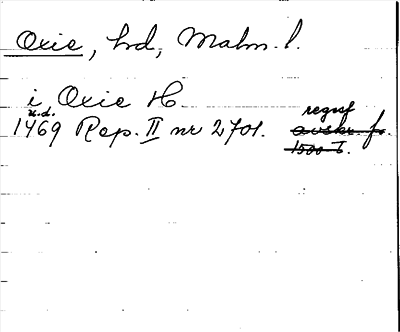 Oxie, hd, Malm. l.
i Oxie H
u.d. regest
1469 Rep. II nr 2701. avskr. fr.
1500 t.